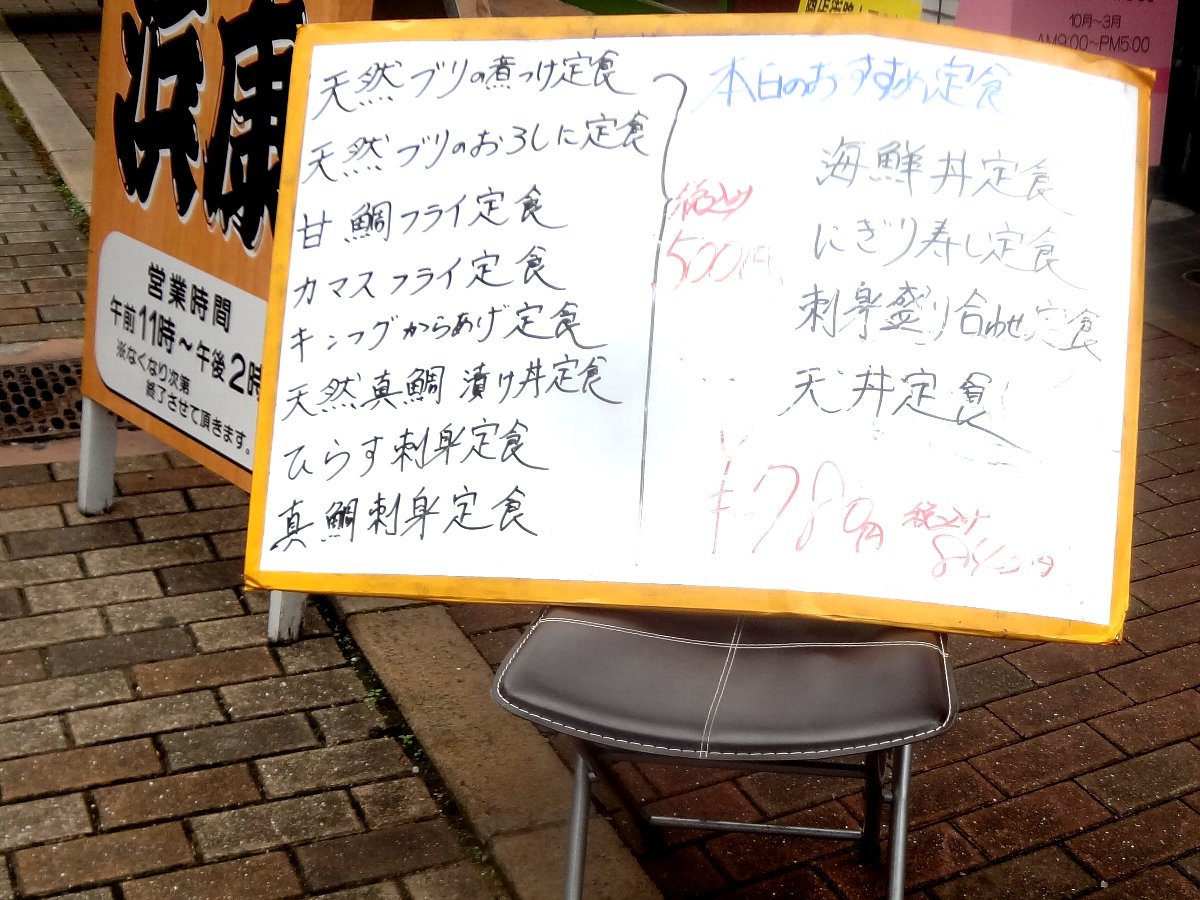 天然ブリの煮つけ定食
天然ブリのおろしに定食
甘鯛フライ定食
カマスフライ定食
キングからあげ定食
天然真鯛漬け丼定食
ひらす刺身定食
真鯛刺身定食
税込
500円
本日のおすすめ定食
海鮮丼定食
にぎり寿し定食
刺身盛り合わせ定食
天丼定食
¥780
税込
浜康
営業時間
午前11時～午後2時
※なくなり次第
終了させて頂きます。
10月～3月
AM9:00～PM5:00